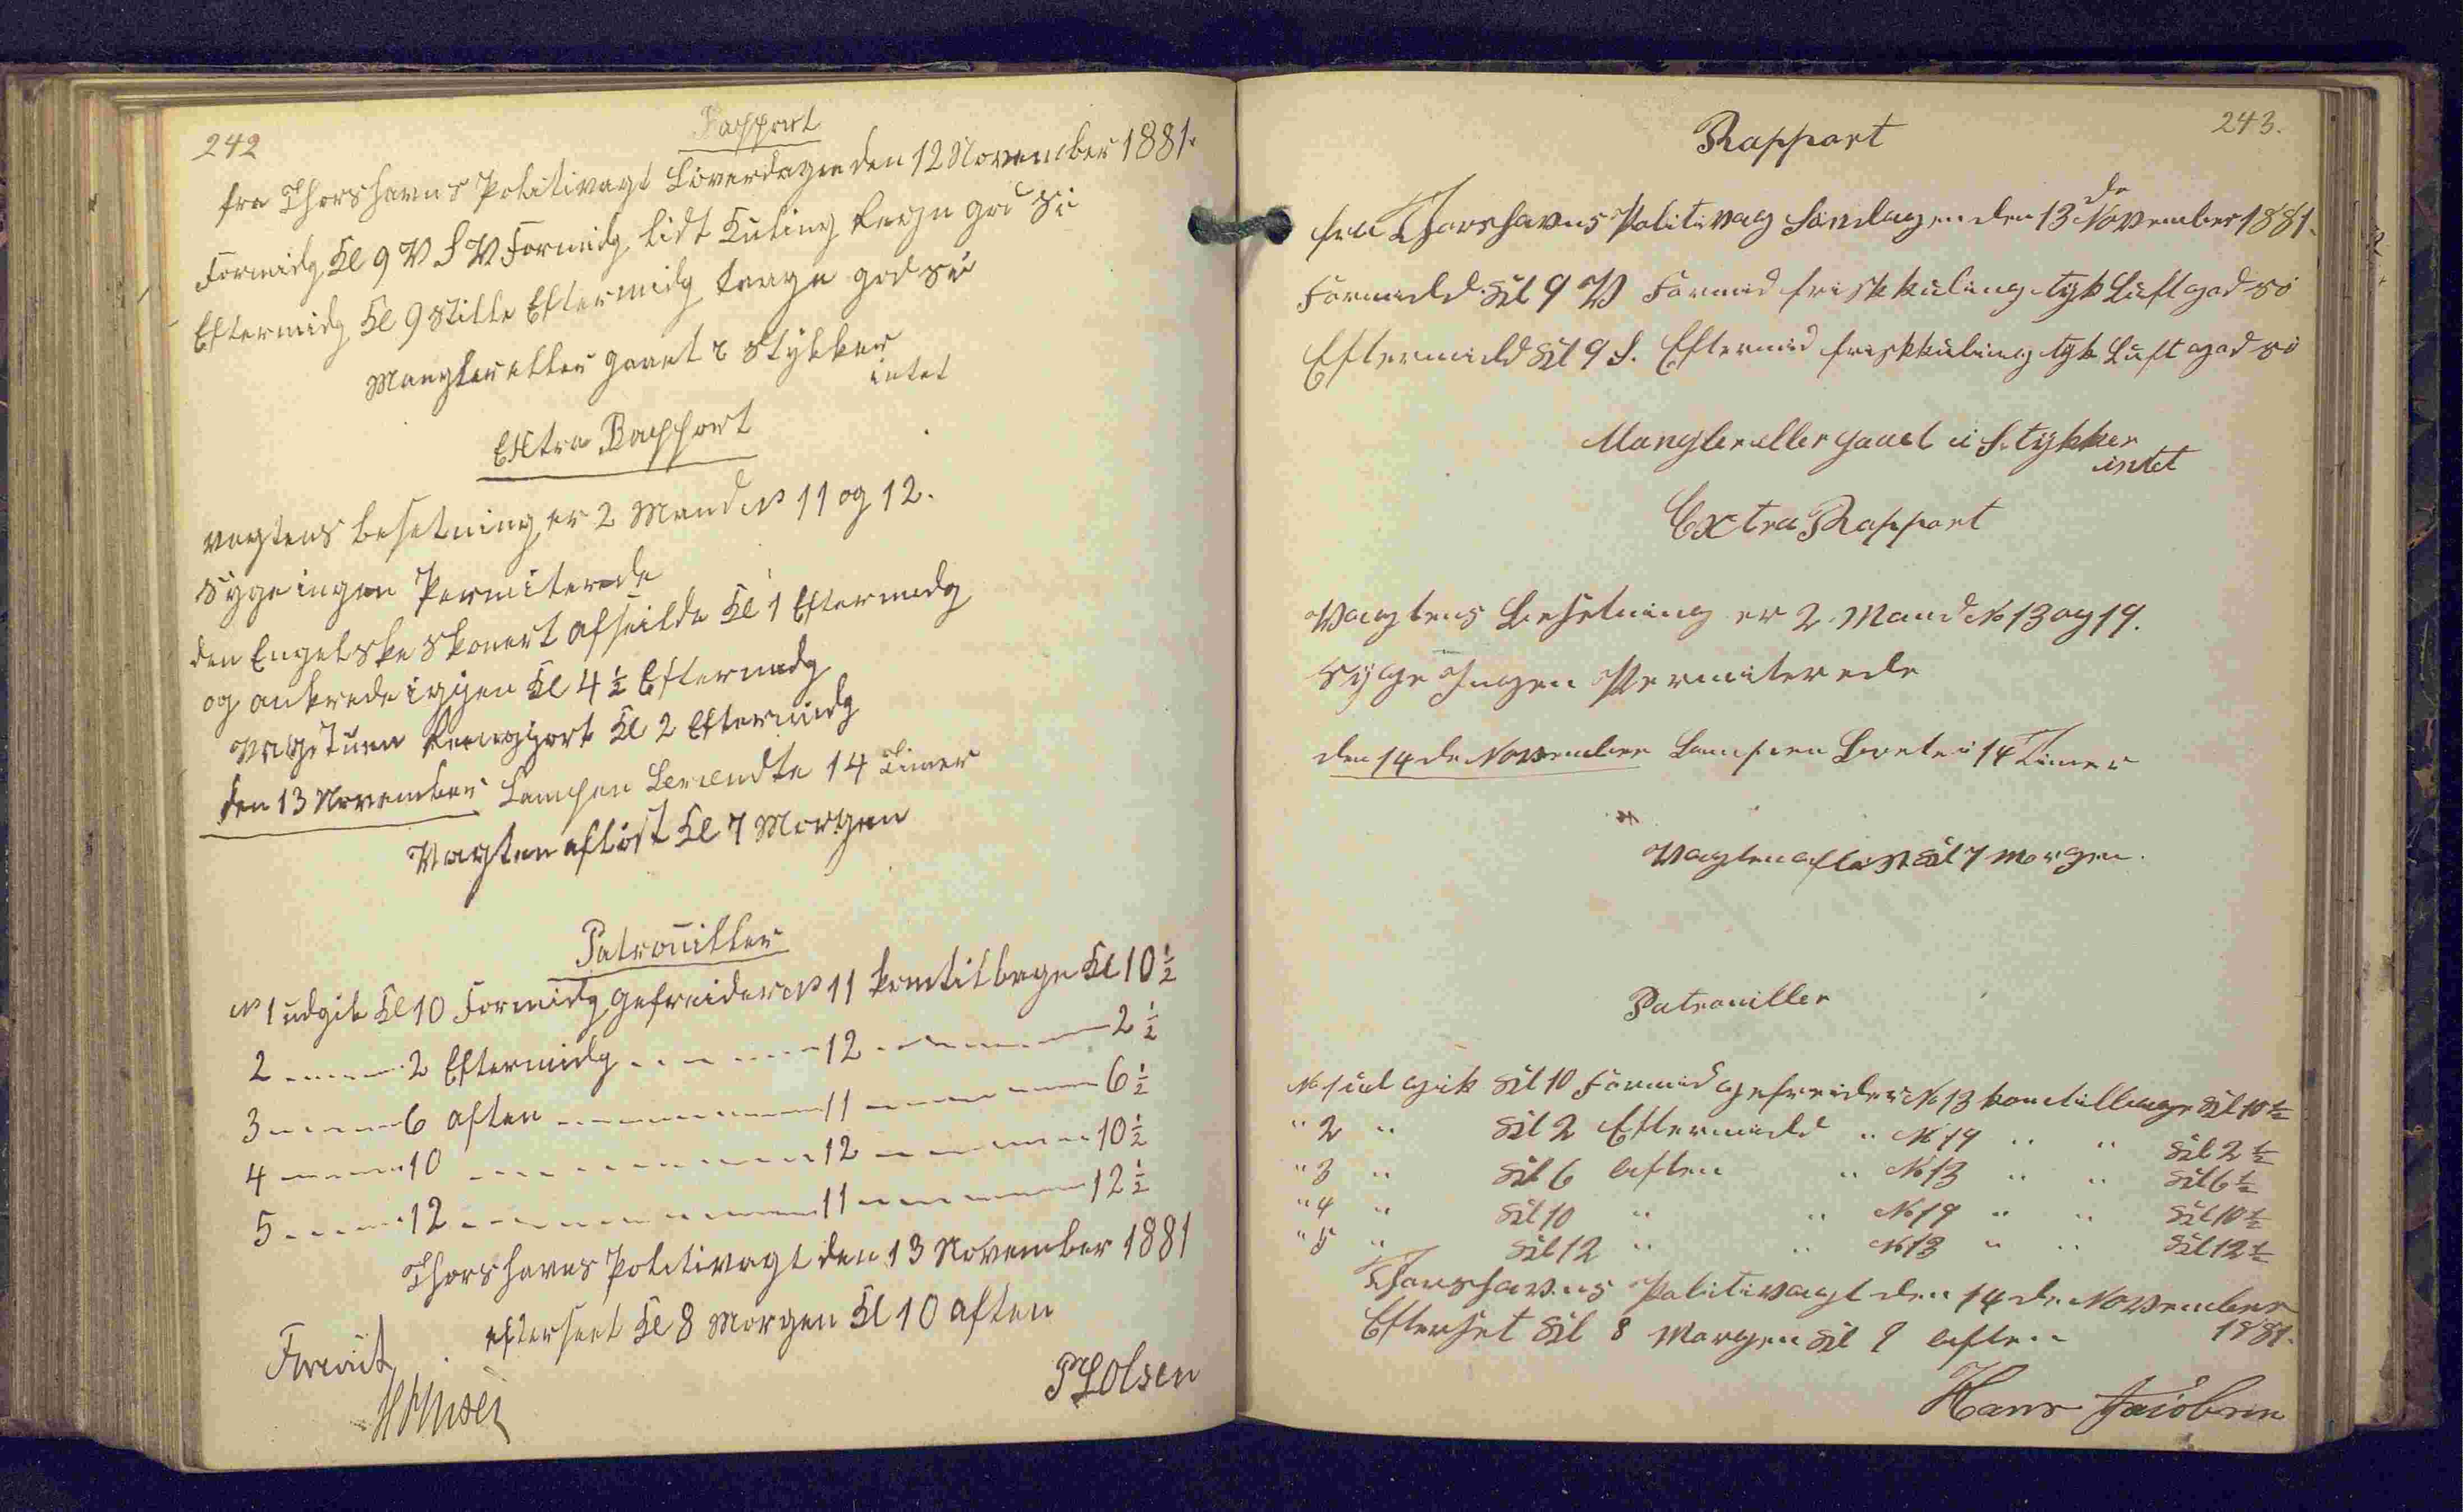 242
Rapport
fra Thorshavns Politivagt Löverdagen den 12 November 1881.
Formidg Kl 9 V S V Formidg lidt Kuling Regn god Sö
Eftermidg Kl 9 Stille Eftermidg taage god Sö
Mangler eller gaaet i Stykker
intet
Extra Rapport
vagtens besetning er 2 Mand No 11 og 12.
Syge ingen Permiterede
den Engelske Skonert afseilde Kl 1 Eftermdg
og ankrede igjen Kl 4 ½ Eftermdg
Vagtstuen Reengjort Kl 2 Eftermidg
den 13 November Lampen Brændte 14 Timer
Vagten aflöst Kl 7 Morgen
Patrouiller
No 1 udgik Kl 10 Formidg gefreider No 11 kom tilbage Kl 10 ½
2 2 Eftermidg 12 2 ½
3 6 aften 11 6 ½
4 10 12 10 ½
5 12 11 12 ½
Thorshavns Politivagt den 13 November 1881
efterseet Kl 8 Morgen Kl 10 aften
P Olsen
243.
Rapport
fra Thorshavns Politivag Söndagen den 13de November 1881.
Formidd Kl 9 V Formid frisk kuling tyk Luft god Sö
Eftermidd Kl 9 S. Eftermid frisk kuling tyk Luft god Sö
Mangler eller gaaet i Stykker
intet
Extra Rapport
Vagtens Besetning er 2 Mand No 13 og 19.
Syge Ingen Permiterede
den 14de November Lampen Brente i 14 Timer
Vagten aflöst Kl 7 Morgen.
Patrouiller
No 1 ud gik Kl 10 Formid gefreider No 13 kom tilbage Kl 10 ½
" 2 " Kl 2 Eftermidd " No 19 " " Kl 2 ½
" 3 " Kl 6 aften " No 13 " " Kl 6 ½
" 4 " Kl 10 " " No 19 " " Kl 10 ½
" 5 " Kl 12 " " No 13 " " Kl 12 ½
Thorshavns Politivagt den 14de November
1881.
Efterset Kl 8 Morgen Kl 9 aften
Hans Jacobsen